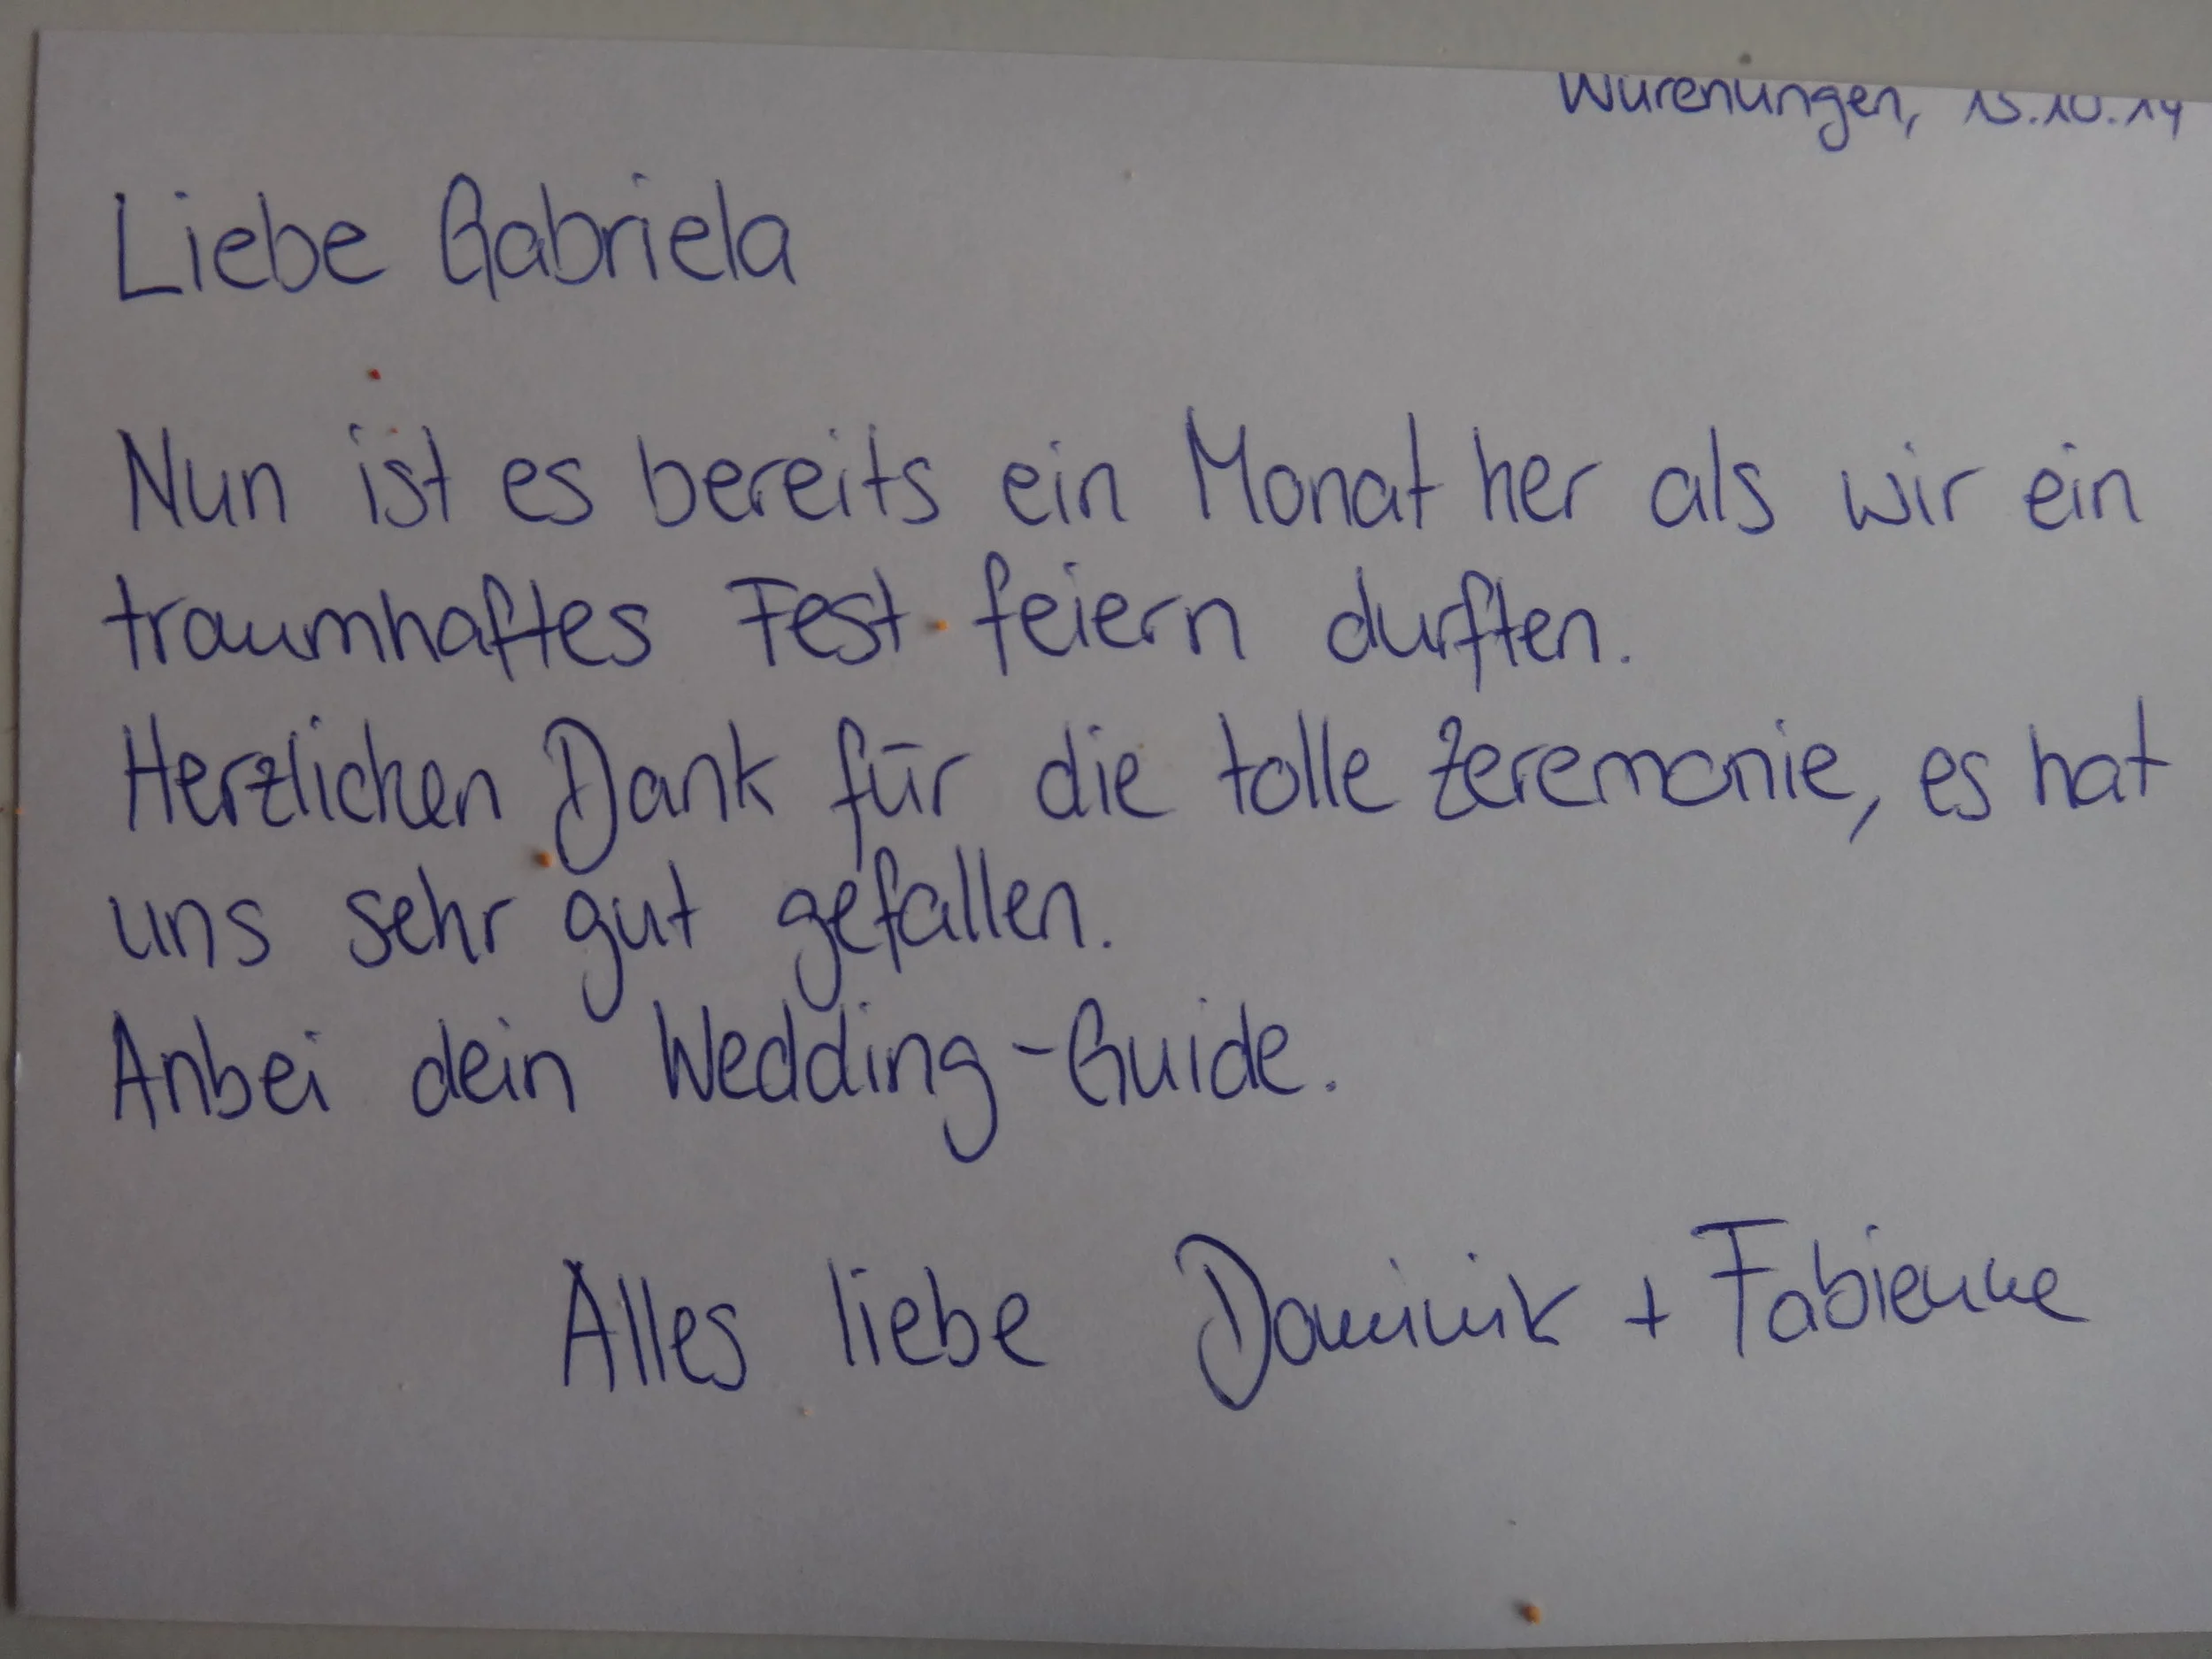 Würenlingen, 15.10.14
Liebe Gabriela
Nun ist es bereits ein Monat her als wir ein
traumhaftes Fest feiern durften.
Herzlichen Dank für die tolle Zeremonie, es hat
uns sehr gut gefallen.
Anbei dein Wedding-Guide.
Alles liebe Dominik + Fabienne